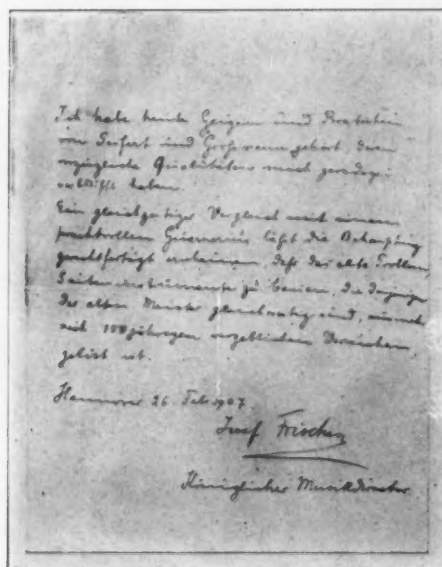 Ich habe heute Geigen und Bratschen
von Seifert und Grossmann gehört, deren
vorzügliche Qualitäten mich geradezu
verblüfft haben.
Ein gleichzeitiger Vergleich mit einem
prachtvollen Guarnerius läßt die Behauptung
gerechtfertigt erscheinen, daß das alte
Saiteninstrumente zu bauen, die denjenigen
der alten Meister gleichwertig sind, nunmehr
nach 150 jährigen vergeblichen Versuchen
gelöst ist.
Hannover 26. Feb. 1907.
Josef Frischen
Königlicher Musikdirector.